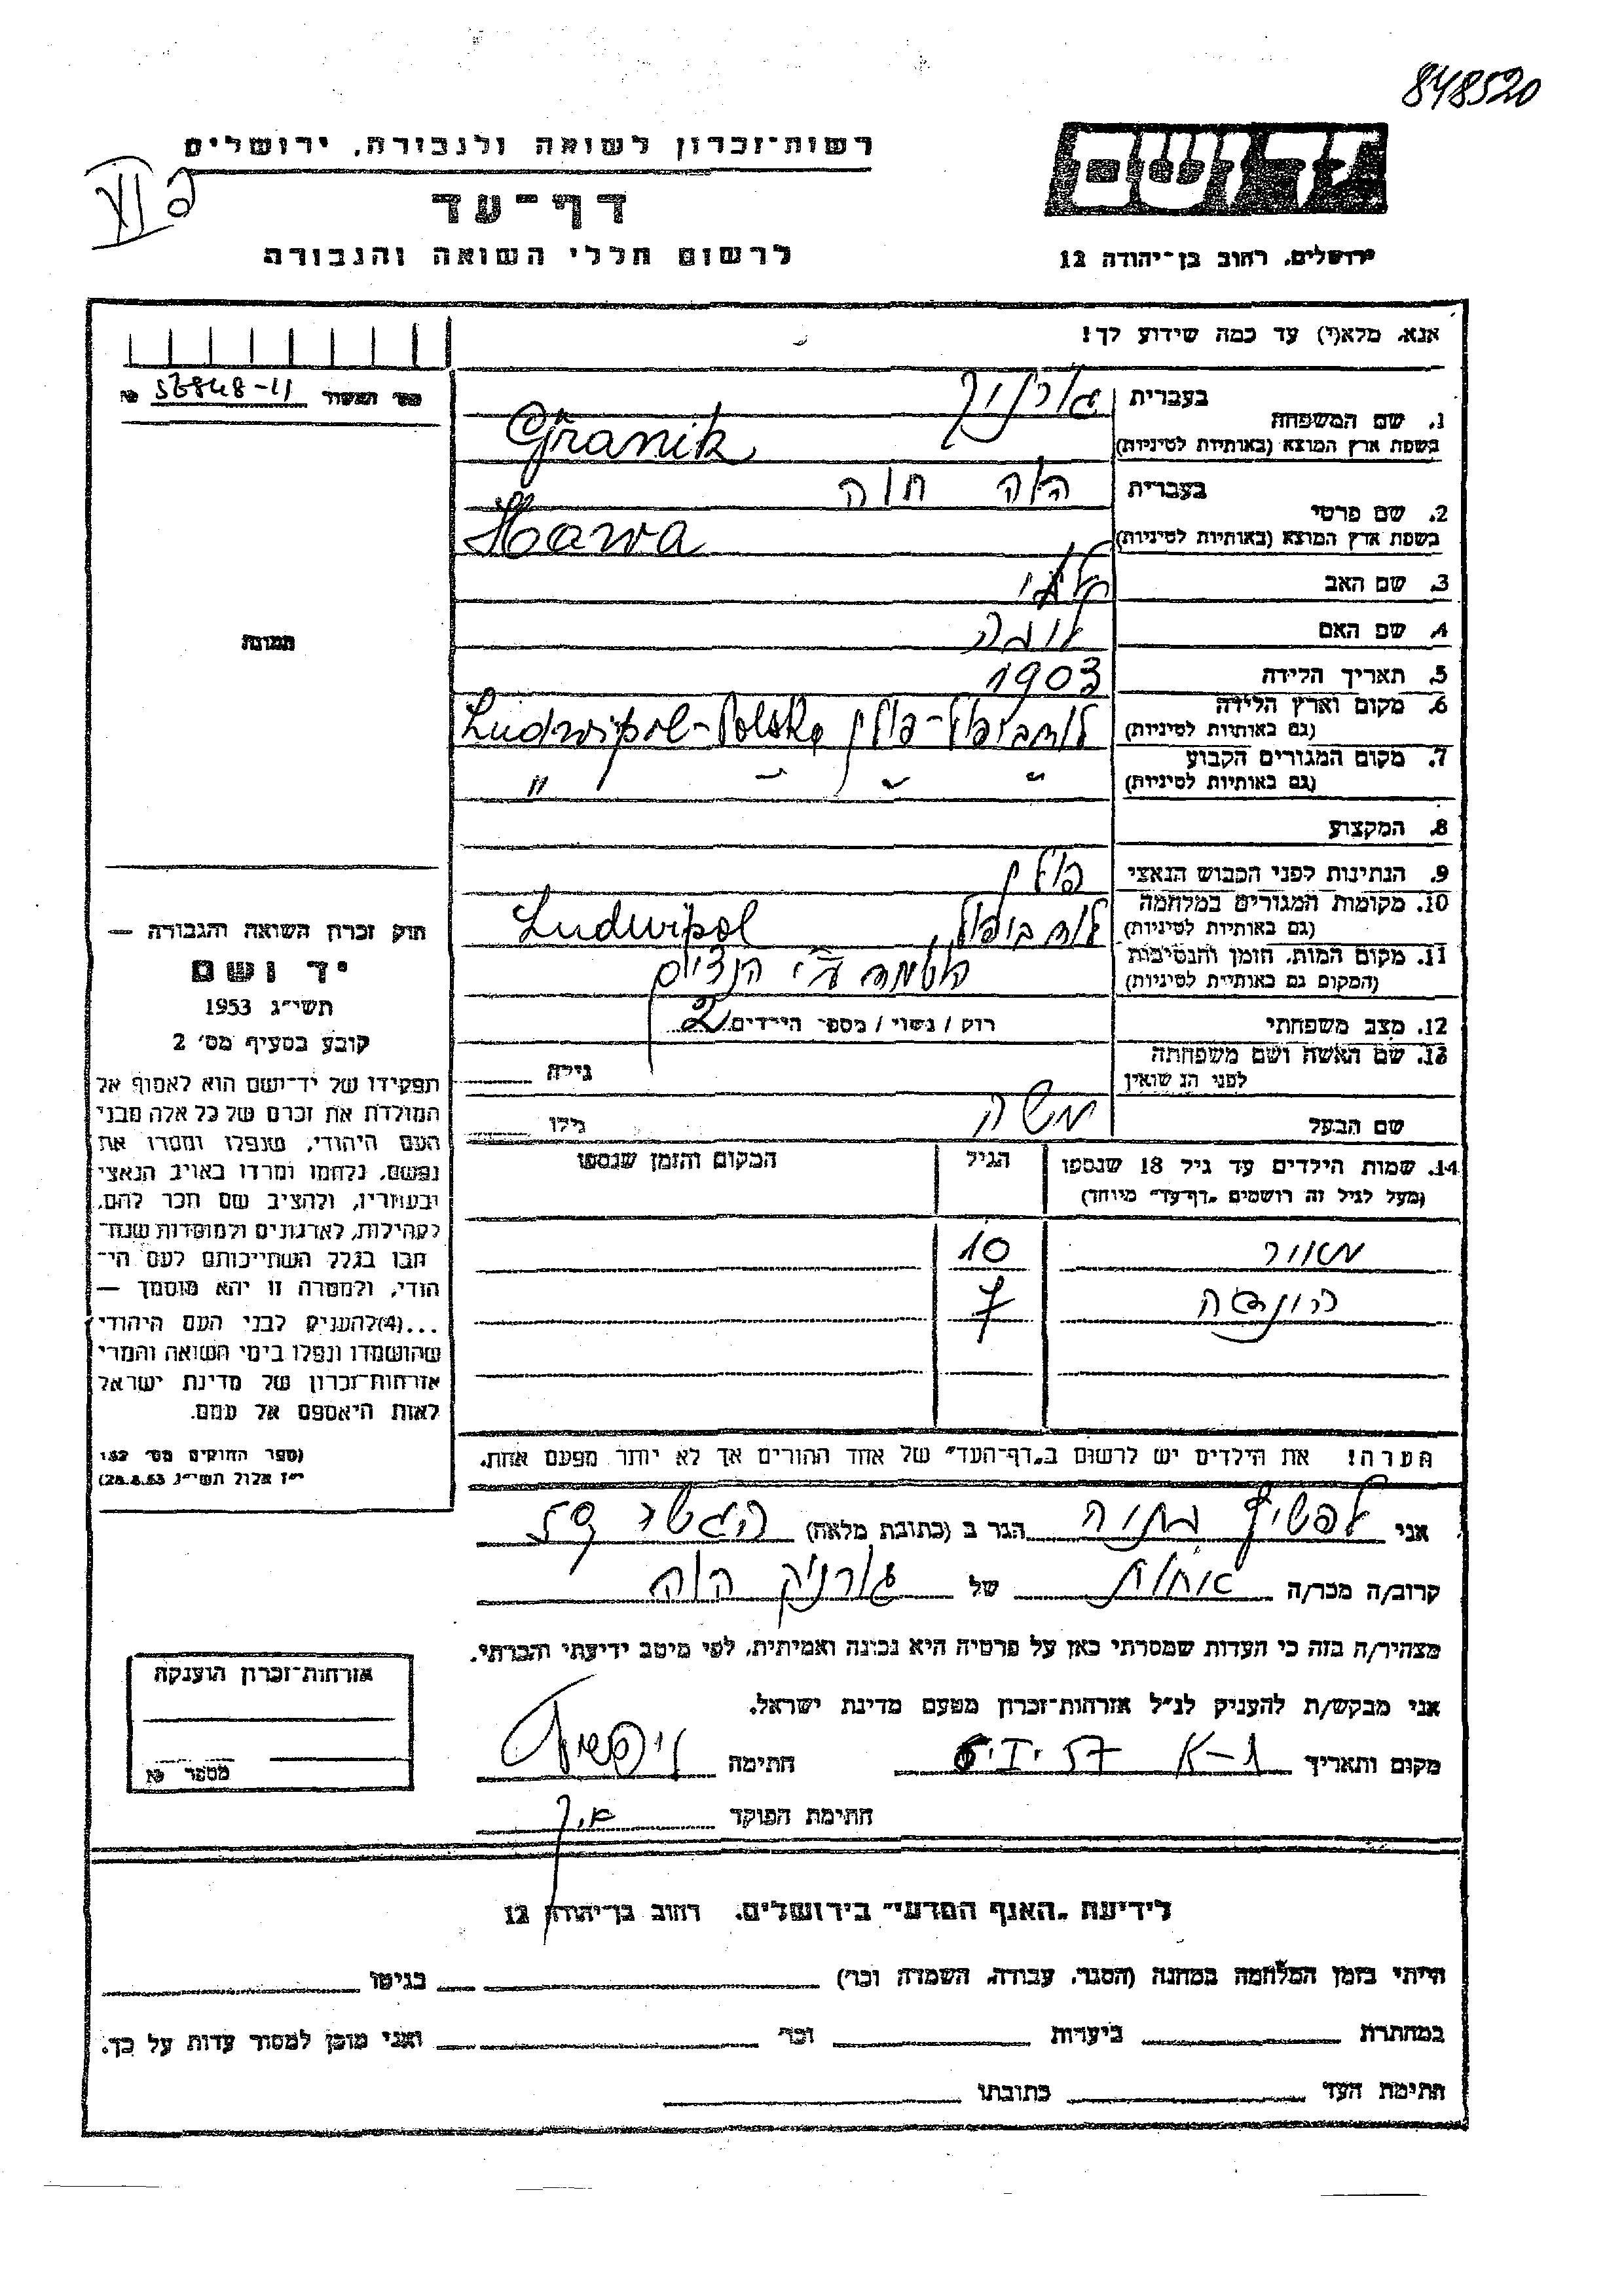 848520
רשות־זכרון לשואה ולגבורה, ירושלים
דף־עד
לרשום חללי השואה והגבורה
יד ושם
ירושלים, רחוב בן־יהודה 12
אנא, מלא(י) עד כמה שידוע לך!
מס' האשור 56848-11 №
תמונה
1. שם המשפחה
בעברית גרניק
בשפת ארץ המוצא (באותיות לטיניות) Granik
2. שם פרטי
בעברית חוה
בשפת ארץ המוצא (באותיות לטיניות) Hawa
3. שם האב
4. שם האם
5. תאריך הלידה 1903
6. מקום וארץ הלידה
(גם באותיות לטיניות) לודביפול-פולין Ludwipol-Polska
7. מקום המגורים הקבוע
(גם באותיות לטיניות) " " " "
8. המקצוע
9. הנתינות לפני הכבוש הנאצי פולין
10. מקומות המגורים במלחמה
(גם באותיות לטיניות) לודביפול, Ludwipol
11. מקום המות, הזמן והנסיבות
(המקום גם באותיות לטיניות) הושמדה ע"י הנצים
12. מצב משפחתי רוק / נשוי / מספר הילדים 2
13. שם האשה ושם משפחתה
לפני הנשואין גילה
שם הבעל משה גילו
14. שמות הילדים עד גיל 18 שנספו הגיל המקום והזמן שנספו
(מעל לגיל זה רושמים "דף־עד" מיוחד)
מאיר 10
7
הערה! את הילדים יש לרשום ב"דף־העד" של אחד ההורים אך לא יותר מפעם אחת.
חוק זכרון השואה והגבורה —
יד ושם
תשי״ג 1953
קובע בסעיף מס׳ 2
תפקידו של יד־ושם הוא לאסוף אל
המולדת את זכרם של כל אלה מבני
העם היהודי, שנפלו ומסרו את
נפשם, נלחמו ומרדו באויב הנאצי
ובעוזריו, ולהציב שם וזכר להם,
לקהילות, לארגונים ולמוסדות שנח־
רבו בגלל השתייכותם לעם הי־
הודי, ולמטרה זו יהא מוסמך —
...(4) להעניק לבני העם היהודי
שהושמדו ונפלו בימי השואה והמרי
אזרחות־זכרון של מדינת ישראל
לאות היאספם אל עמם.
(ספר החוקים מס׳ 132
י״ז אלול תשי״ג 28.8.53)
אני ליפשיץ הגר ב (כתובת מלאה)
קרוב/ה מכר/ה אחות של גרניק חוה
מצהיר/ה בזה כי העדות שמסרתי כאן על פרטיה היא נכונה ואמיתית, לפי מיטב ידיעתי והכרתי.
אני מבקש/ת להעניק לנ״ל אזרחות־זכרון מטעם מדינת ישראל.
מקום ותאריך ת-א חתימה ליפשיץ
חתימת הפוקד
אזרחות־זכרון הוענקה
מספר №
לידיעת "האגף המדעי" בירושלים, רחוב בן־יהודה 12
הייתי בזמן המלחמה במחנה (הסגר, עבודה, השמדה וכו׳) בגיטו
במחתרת ביערות וכו׳ ואני מוכן למסור עדות על כך.
חתימת העד כתובתו